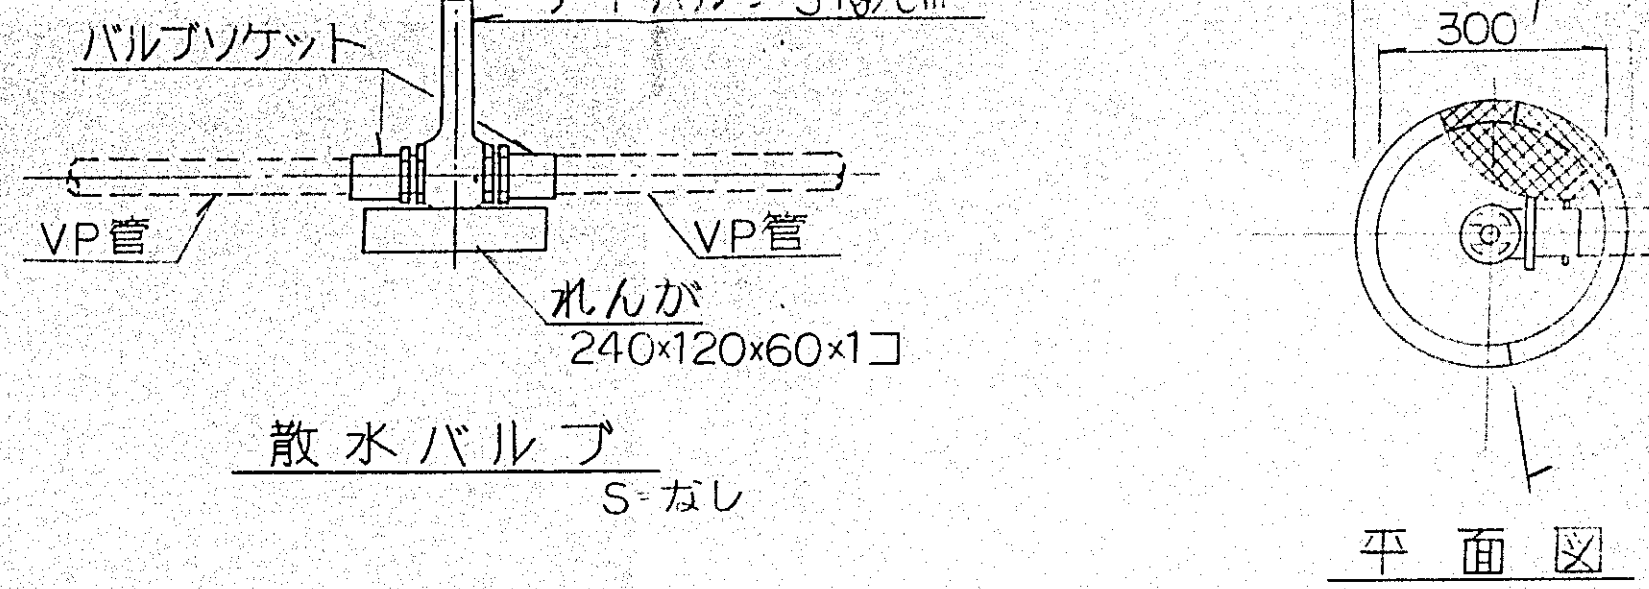 バルブソケット
300
VP管
VP管
れんが
240×120×60×1コ
散水バルブ
S=なし
平面図